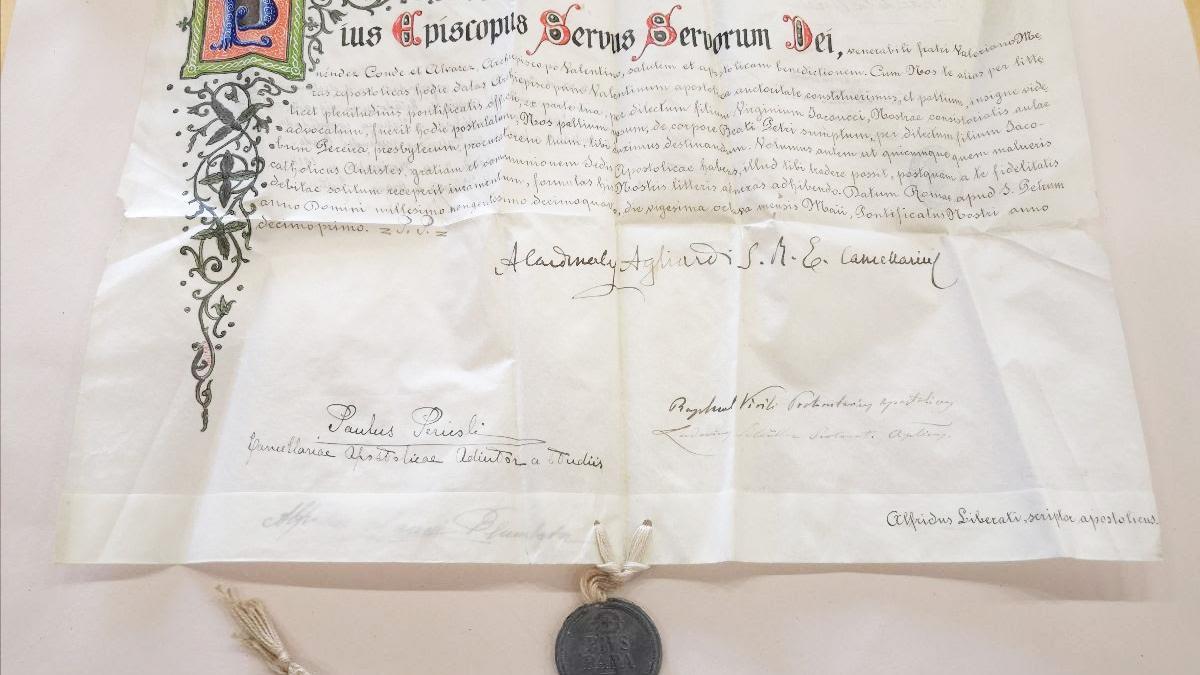 Pius Episcopus Servus Servorum Dei, venerabili fratri Valeriano Me
néndez Conde et Alvarez, Archiepiscopo Valentino, salutem et apostolicam benedictionem. Cum Nos te ‎ per litte
ras apostolicas hodie datas Archiepiscopum Valentinum apostolica auctoritate constituerimus, et pallium, insigne vide
licet plenitudinis pontificatis officii, ex parte tua, per dilectum filium Virginium Jacoucci, Nostrae consistorialis aulae
advocatum, fuerit hodie postulatum, Nos pallium ipsum, de corpore Beati Petri sumptum, per dilectum filium Jaco-
obum Pereira, presbyterum, procuratorem tuum, tibi duximus destinandum. Volumus autem ut quicumque quem malueris
catholicus Antistes, gratiam et communionem Sedis Apostolicae habens, illud tibi tradere possit, postquam a te fidelitatis
debitae solitum receperit iuramentum, formulas his Nostris litteris adhibendo. Datum Romae apud S. Petrum
anno Domini millesimo nongentesimo decimoquarto, die vigesima octava mensis Maii, Pontificatus Nostri anno
decimoprimo.
A Cardinalis Agliardi S. R. E. Cancellarius
Raphael Virili Protonotarius apostolicus
Paulus Pericoli
Cancellariae Apostolicae Adiutor a Studiis
Alfridus Liberati, scriptor apostolicus.
PIVS
PAPA